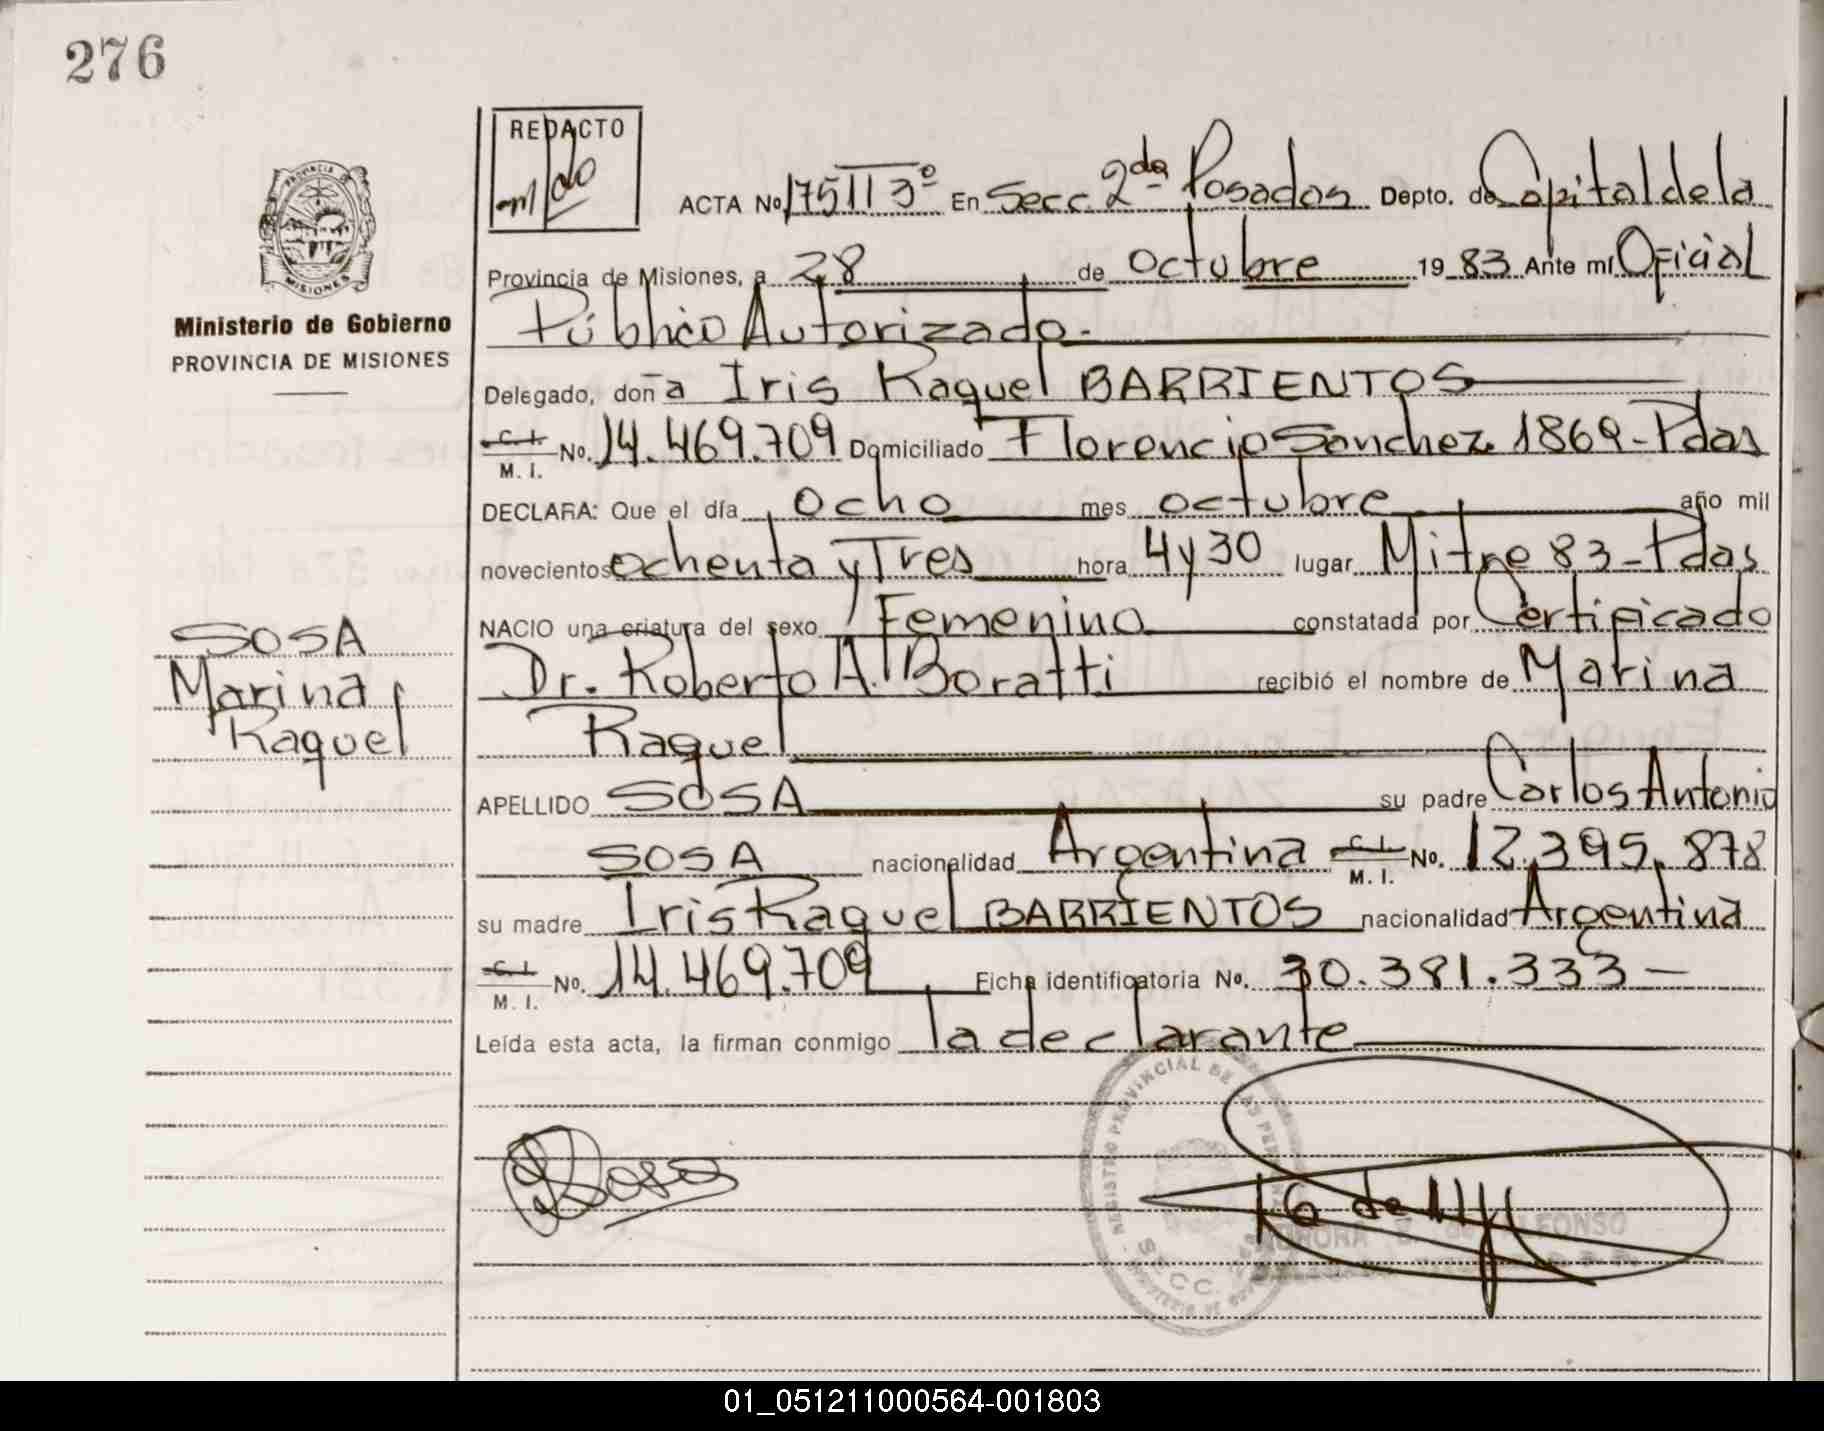 276
REDACTO
PROVINCIA DE
MISIONES
Ministerio de Gobierno
PROVINCIA DE MISIONES
ACTA No 175 II 3º En Secc. 2da Posadas Depto. de Capital de la
Provincia de Misiones, a 28 de octubre 19 83 Ante mí Oficial
Público Autorizado.-
Delegado, doña Iris Raquel BARRIENTOS
C. I. M. I. No. 14.469.709 Domiciliado Florencio Sanchez 1869-Pdas
DECLARA: Que el día ocho mes octubre año mil
novecientos ochenta y Tres hora 4 y 30 lugar Mitre 83-Pdas
NACIO una criatura del sexo Femenino constatada por Certificado
Dr. Roberto A. Boratti recibió el nombre de Marina
Raquel
APELLIDO SOSA su padre Carlos Antonio
SOSA nacionalidad Argentina C. I. M. I. No. 12.395.878
su madre Iris Raquel BARRIENTOS nacionalidad Argentina
C. I. M. I. No. 14.469.709 Ficha identificatoria No. 30.381.333-
Leída esta acta, la firman conmigo la declarante
SOSA
Marina
Raquel
REGISTRO PROVINCIAL DE LAS PER
SECC.
01_051211000564-001803